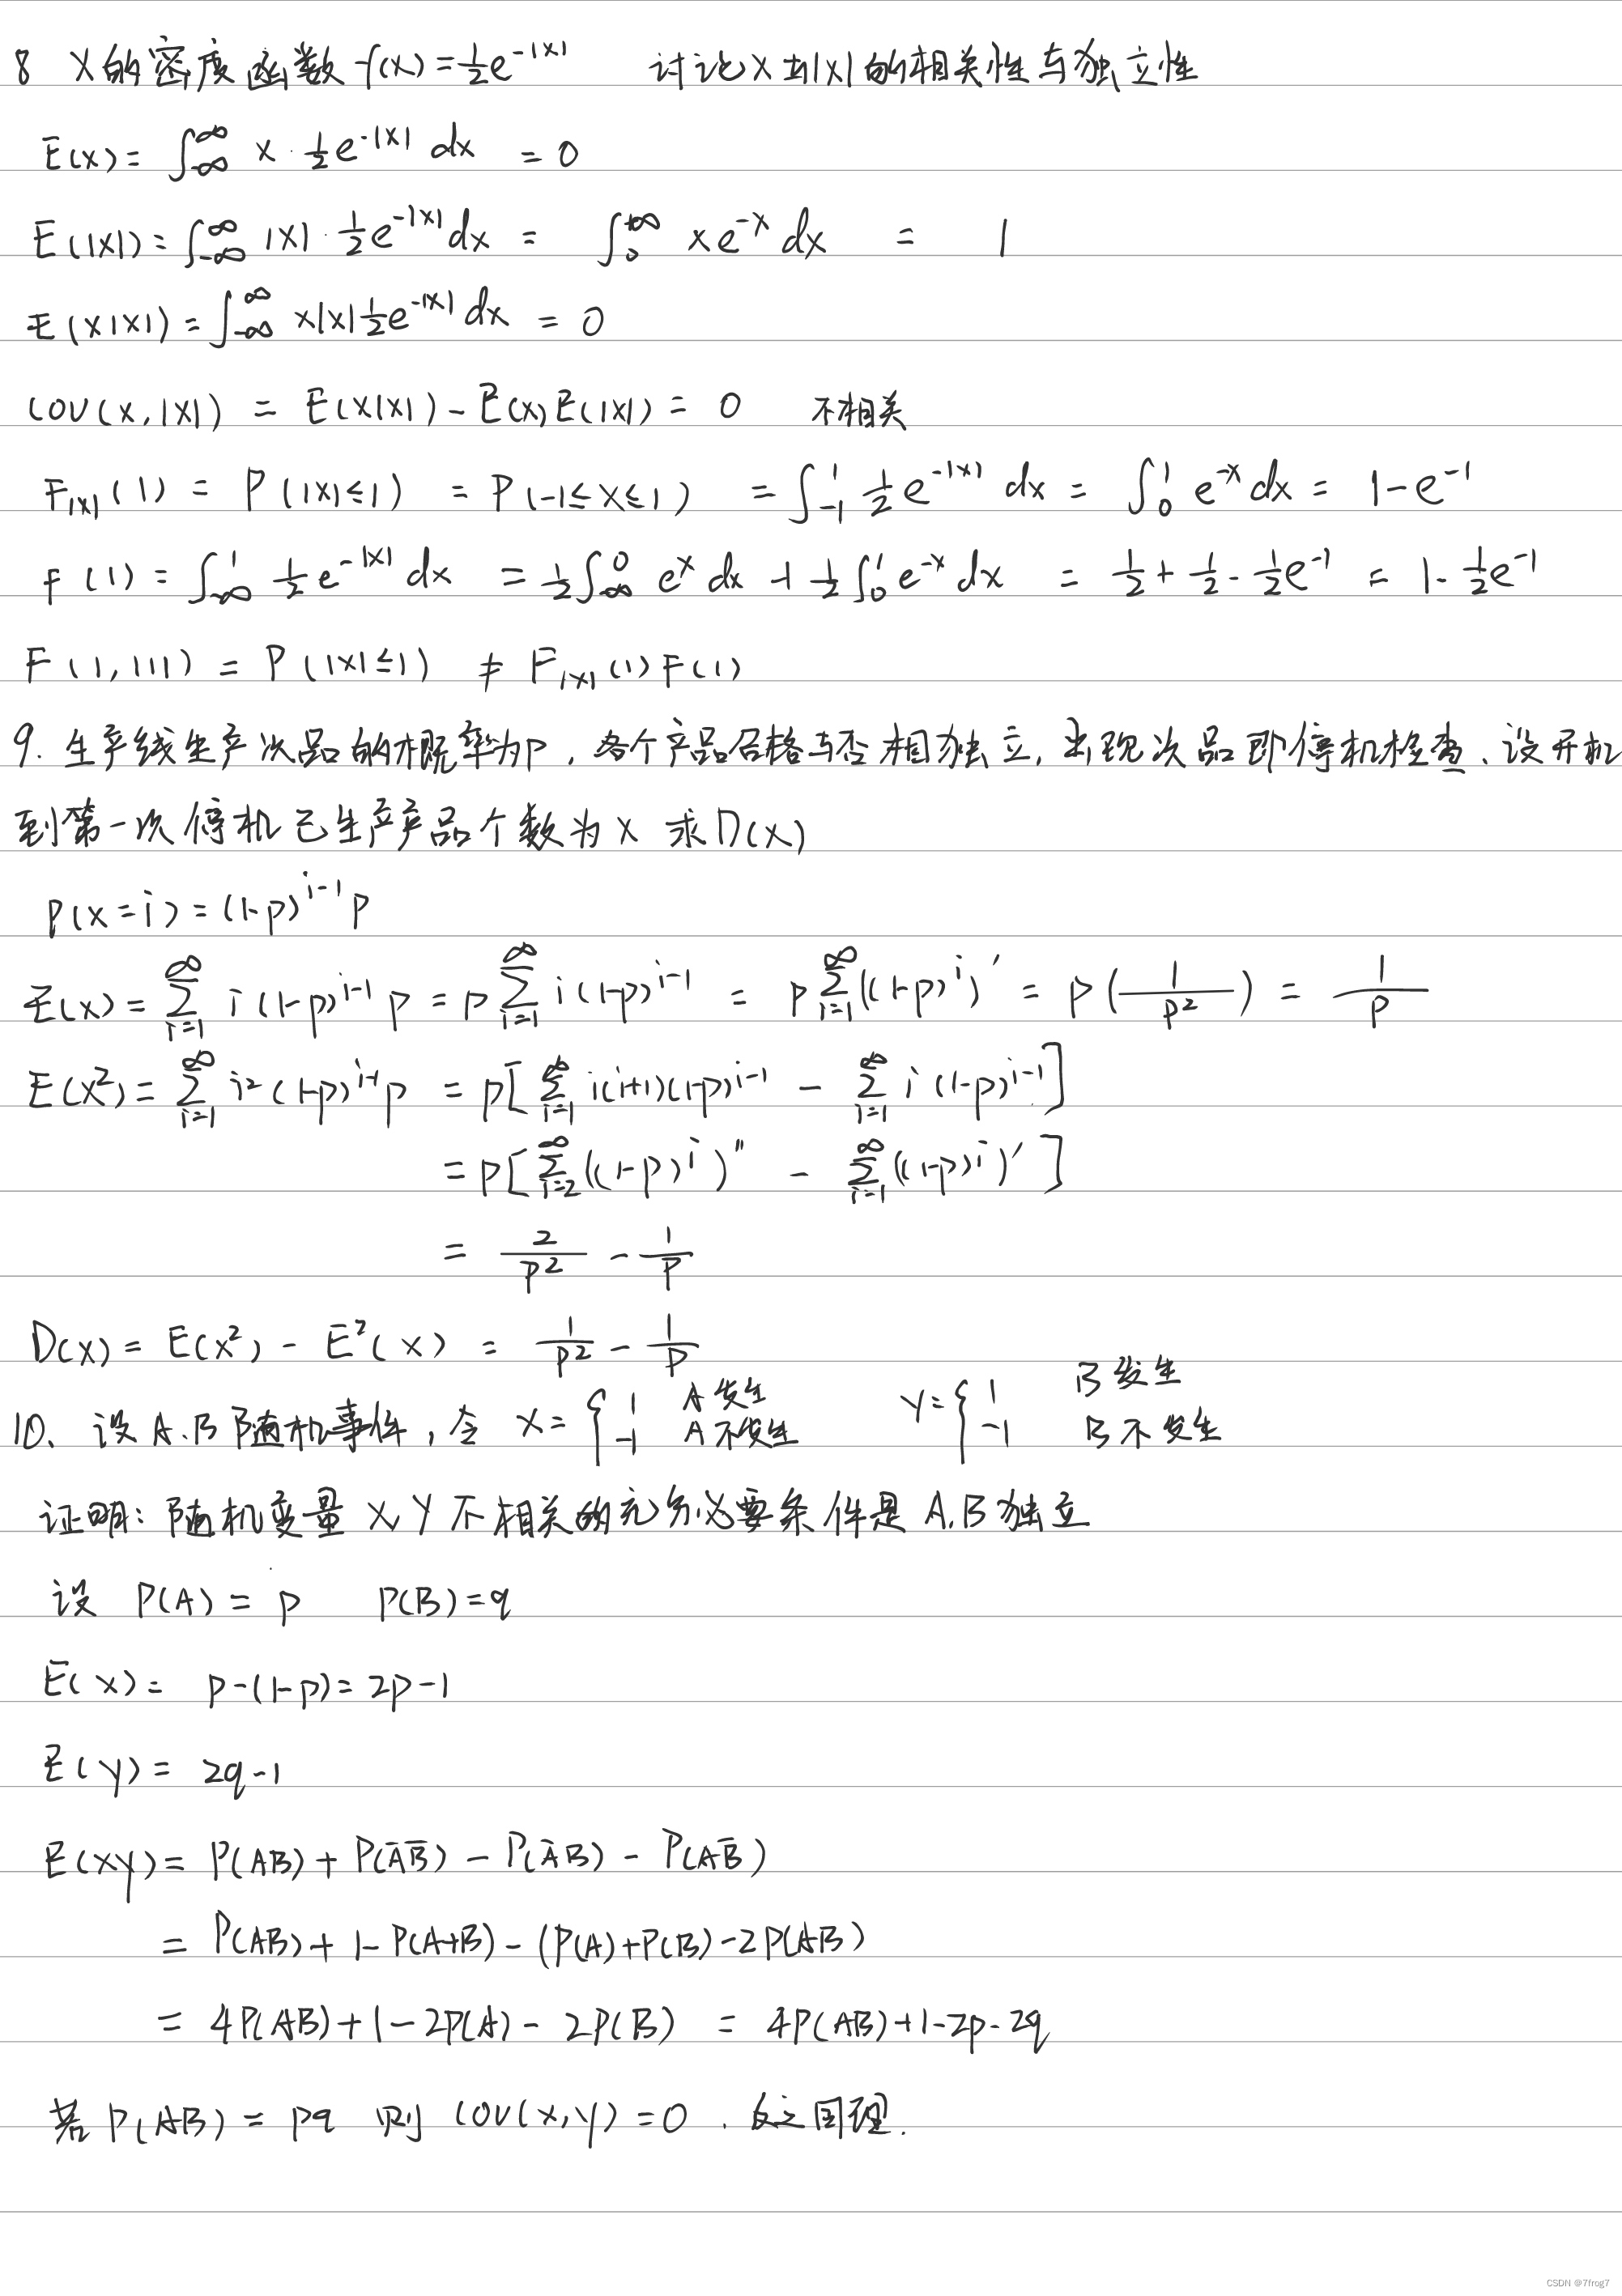 8 X的密度函数 f(x)=½e^{-|x|} 讨论X与|X|的相关性与独立性
E(x)= ∫_{-∞}^{∞} x·½e^{-|x|} dx = 0
E(|x|)= ∫_{-∞}^{∞} |x|·½e^{-|x|}dx = ∫_0^{+∞} xe^{-x} dx = 1
E(x|x|)= ∫_{-∞}^{∞} x|x|½e^{-|x|}dx = 0
COV(x,|x|) = E(x|x|)-E(x)E(|x|)= 0 不相关
F_{|x|}(1) = P(|x|≤1) = P(-1≤x≤1) = ∫_{-1}^{1} ½e^{-|x|} dx = ∫_0^1 e^{-x}dx = 1-e^{-1}
F(1)= ∫_{-∞}^{1} ½e^{-|x|}dx = ½∫_{-∞}^{0} e^x dx + ½∫_0^1 e^{-x}dx = ½+½-½e^{-1} = 1-½e^{-1}
F(1,|1|) = P(|x|≤1) ≠ F_{|x|}(1)F(1)
9. 生产线生产次品的概率为p,各个产品合格与否相独立,出现次品即停机检查、设开机
到第一次停机已生产产品个数为X 求D(X)
P(x=i)=(1-p)^{i-1}p
E(x)= ∑_{i=1}^{∞} i(1-p)^{i-1}p = p∑_{i=1}^{∞} i(1-p)^{i-1} = p∑_{i=1}^{∞}((1-p)^i)' = p(1/p²) = 1/p
E(x²)= ∑_{i=1}^{∞} i²(1-p)^{i-1}p = p[∑_{i=1}^{∞} i(i+1)(1-p)^{i-1} - ∑_{i=1}^{∞} i(1-p)^{i-1}]
= p[∑_{i=2}^{∞}((1-p)^i)'' - ∑_{i=1}^{∞}((1-p)^i)']
= 2/p² - 1/p
D(x)= E(x²) - E²(x) = 1/p² - 1/p
10、设A.B随机事件,令 X={ 1 A发生 -1 A不发生 Y={ 1 B发生 -1 B不发生
证明:随机变量X,Y不相关的充分必要条件是A.B独立
设 P(A)= p P(B)=q
E(x)= p-(1-p)=2p-1
E(y)= 2q-1
E(xy)= P(AB)+P(A̅B̅)-P(A̅B)-P(AB̅)
= P(AB)+1-P(A+B)-(P(A)+P(B)-2P(AB)
= 4P(AB)+1-2P(A)-2P(B) = 4P(AB)+1-2p-2q
若P(AB)= pq 则 COV(x,y)=0 .反之同理.
CSDN @7frog7